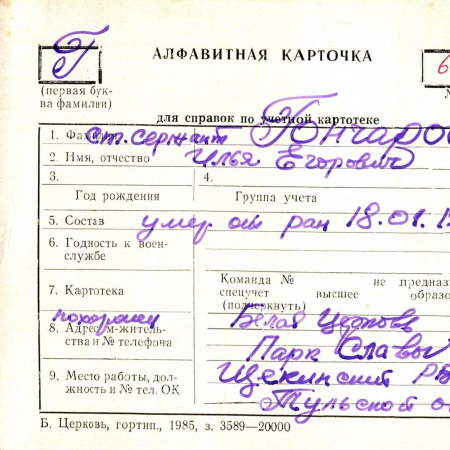 Г
АЛФАВИТНАЯ КАРТОЧКА
6
(первая бук-
ва фамилии)
для справок по учетной картотеке
1. Фамилия ст. сержант Гончаров
2. Имя, отчество Илья Егорович
3.
4.
Год рождения
Группа учета
5. Состав умер от ран 18.01.1
6. Годность к воен-
службе
Команда № не предназ
7. Картотека спецучет высшее образо
(подчеркнуть)
похоронен Белая Церковь
8. Адрес м-житель-
ства и № телефона Парк Славы
9. Место работы, дол-
жность и № тел. ОК Щекинский РВ
Тульской о
Б. Церковь, гортип., 1985, з. 3589—20000